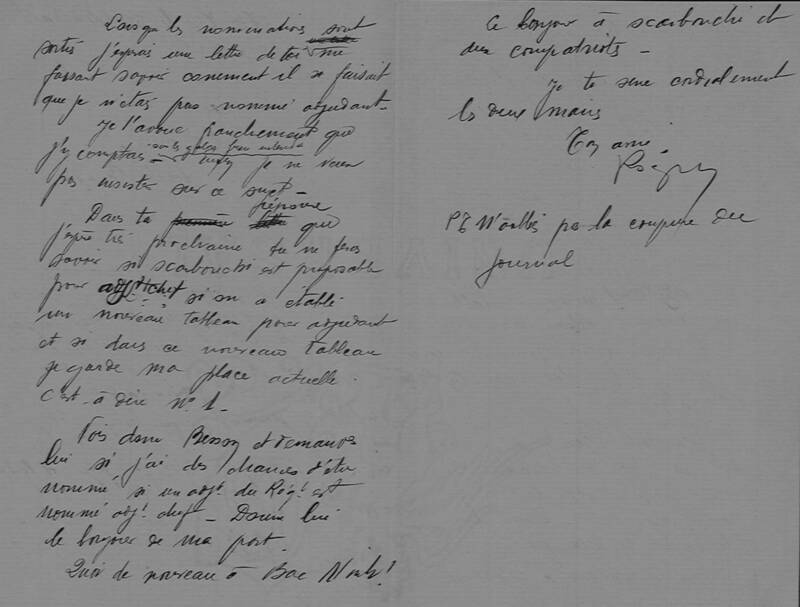 Lorsque les nominations sont
sorties j'espérais une lettre de toi me
faisant savoir comment il se faisait
que je n'étais pas nommé adjudant -
Je l'avoue franchement que
j'y comptais - je ne veux
pas insister sur ce sujet -
réponse
Dans ta première lettre que
j'espère très prochaine tu me feras
savoir si scarbouchi est proposable
pour adjt chef si on a établi
un nouveau tableau pour adjudant
et si dans ce nouveau tableau
je garde ma place actuelle.
C'est à dire No 1 -
Vois donc Besson et demande
lui si j'ai des chances d'être
nommé si un adjt. du Régt. est
nommé adjt. chef - Donne lui
le bonjour de ma part.
Quoi de nouveau à Bac Ninh?
Ce bonjour à scarbouchi et
aux compatriots -
Je te serre cordialement
les deux mains
Ton ami
PS N'oublies pas la coupure du
Journal